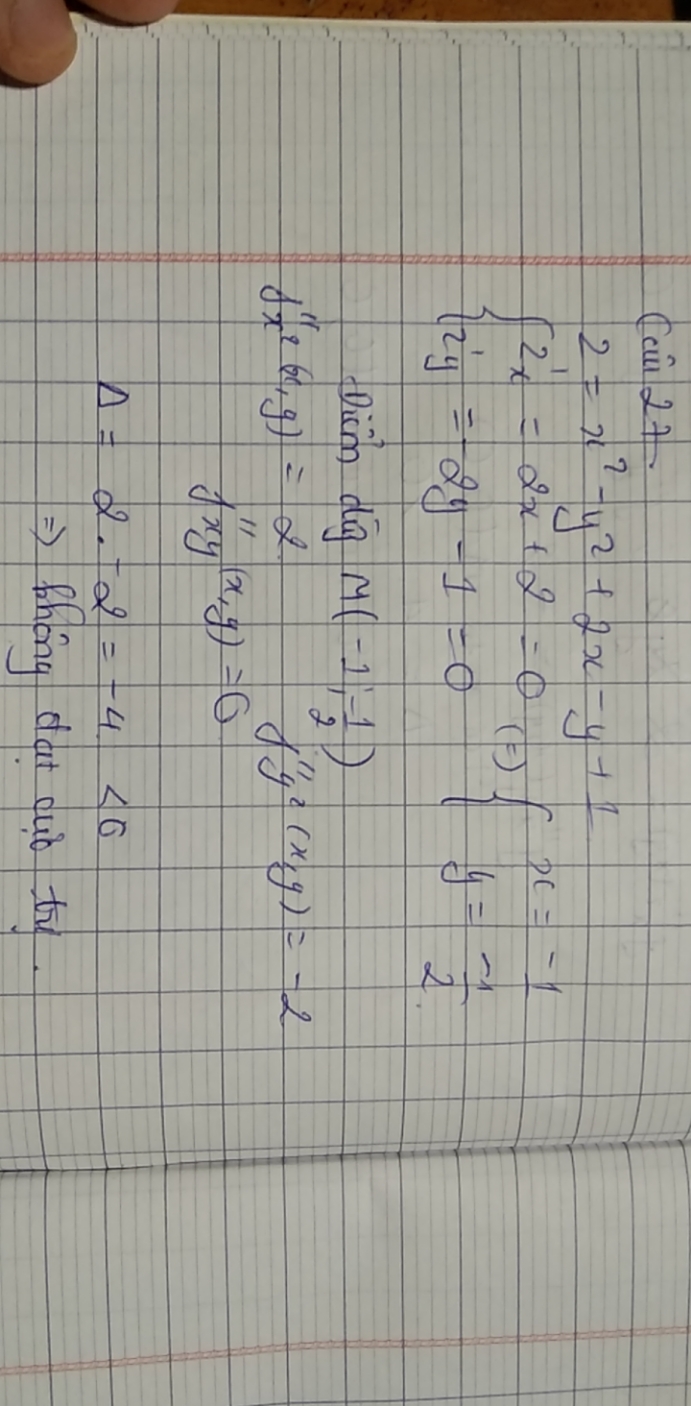 Câu 27
z = x² - y² + 2x - y + 1
{ z'x = 2x + 2 = 0 (=) { x = -1
{ z'y = -2y - 1 = 0 { y = -1/2
Điểm dừg M(-1; -1/2)
f''x²(x,y) = 2 f''y²(x,y) = -2
f''xy(x,y) = 0
Δ = 2.-2 = -4 < 0
⇒ không đạt cực trị.